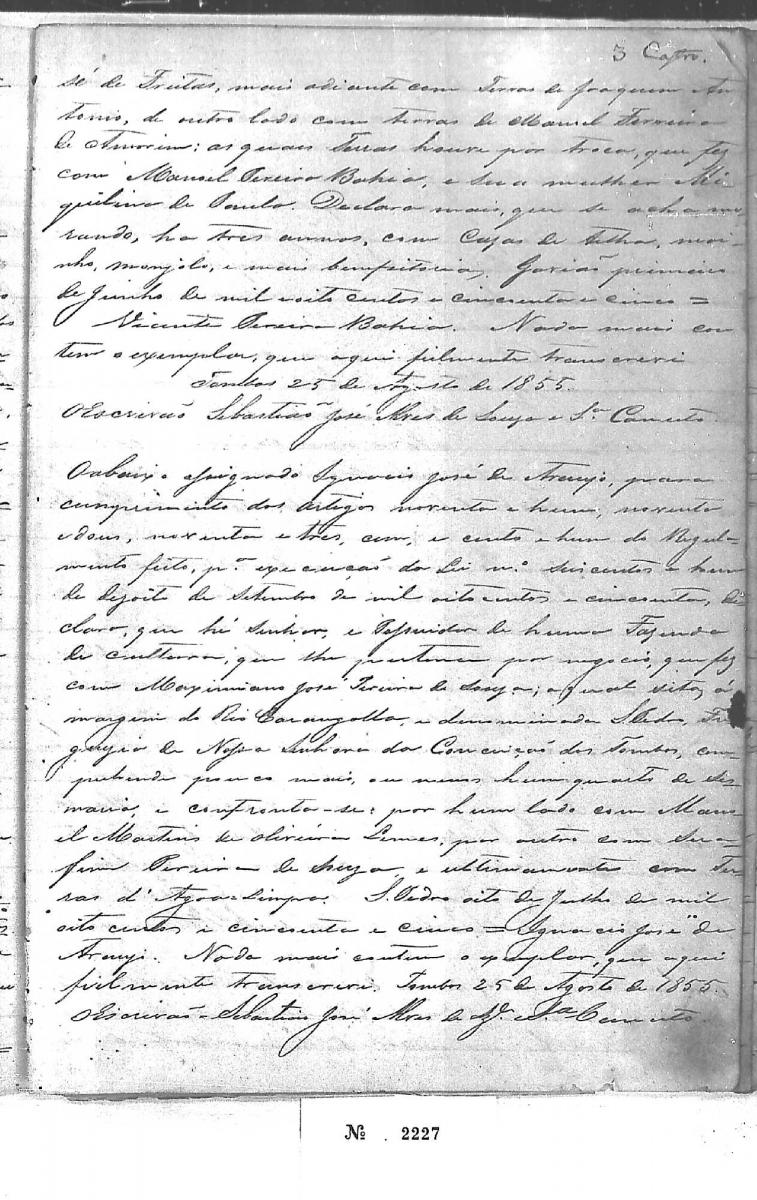 3 Castro.
sé de Freitas, mais adiante com Terras de Joaquim An
tonio, de outro lado com terras de Manoel Ferreira
de Amorim: as quais Terras houve por troca, que fez
com Manoel Pereira Bahia, e sua mulher Mi
quilina de Paula. Declara mais, que se acha mo
rando, ha tres annos, com Cazas de telha, moi-
nho, monjolo, e mais bemfeitorias, Gavião primeiro
de Junho de mil e oito centos e cincoenta e cinco =
Vicente Pereira Bahia. Nada mais con
tem o exemplar, que aqui filmente transcrevi
Tombos 25 de Agosto de 1855.
O Escrivão Sebastião José Alves de Souza e S.ª
O abaixo assignado Ignacio José de Araujo, para
cumprimento dos artigos noventa e hum, noventa
e dous, noventa e tres, cem, e cento e hum do Regula-
mento feito, p.ª execução da Lei n.º seiscentos e hum
de dezoito de Setembro de mil oito centos e cincoenta, de
clara, que hé Senhor, e Possuidor de huma Fazenda
de cultura, que lhe pertence por negocio, que fez
com Maximiano José Pereira de Souza; a qual sita, á
margem do Rio Carangolla, e denominada S. Pedro, Fre
guezia de Nossa Senhora da Conceição dos Tombos, com
prehende pouco mais, ou menos hum quarto de Ses
maria, e confronta-se: por hum lado com Mano
el Martins de Oliveira Lemes, por outro com Sera-
fim Pereira de Souza, e ultimamente com Ter
ras d'Agoa-Limpa. S. Pedro oito de Julho de mil
oito centos e cincoenta e cinco = Ignacio José de
Araujo. Nada mais contem o exemplar, que aqui
filmente transcrevi. Tombos 25 de Agosto de 1855.
O Escrivão - Sebastião José Alves de Sz.ª e S.ª
Nº 2227